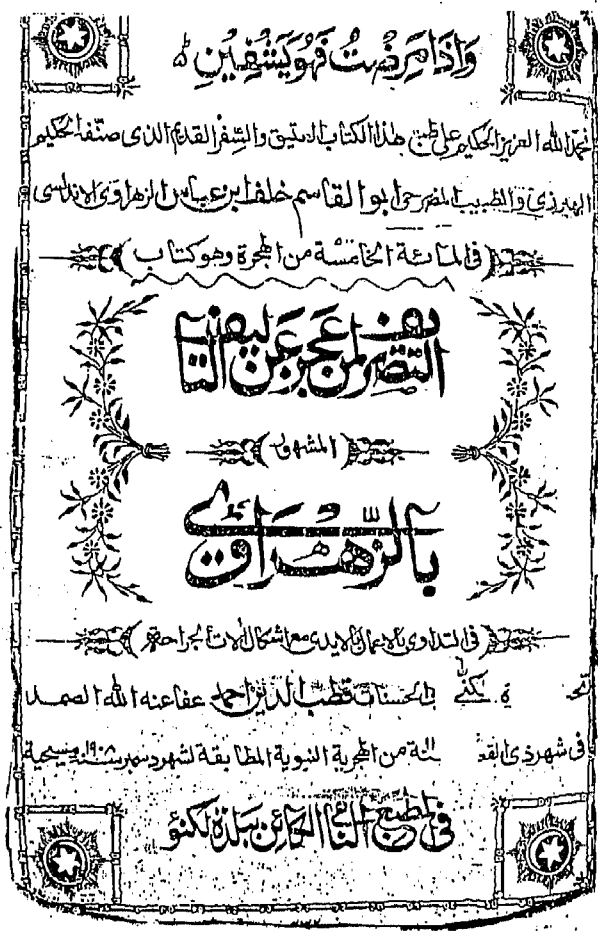 وَاِذَا مَرِضْتُ فَهُوَ يَشْفِيْنِ ط
نحمد الله العزيز الحكيم على طبع هذا الكتاب الانيق والسِّفر القديم الذى صنّفه الحكيم
والطبيب ابو القاسم خلف ابن عباس الزهراوى الاندلسى
فى المائة الخامسة من الهجرة وهو كتاب
التصريف لمن عجز عن التاليف
المشهور
بالزّهراوىّ
فى التداوى بالاعمال الايدى مع اشكال الات الجراحة
الحسنات قطب الدين احمد عفا عنه الله الصمد
فى شهر ذى القعـ من الهجرية النبوية المطابقة لشهر دسمبر سنة ١٩٠٨ مسيحية
فى المطبع النامى الكائن ببلدة لكنئو